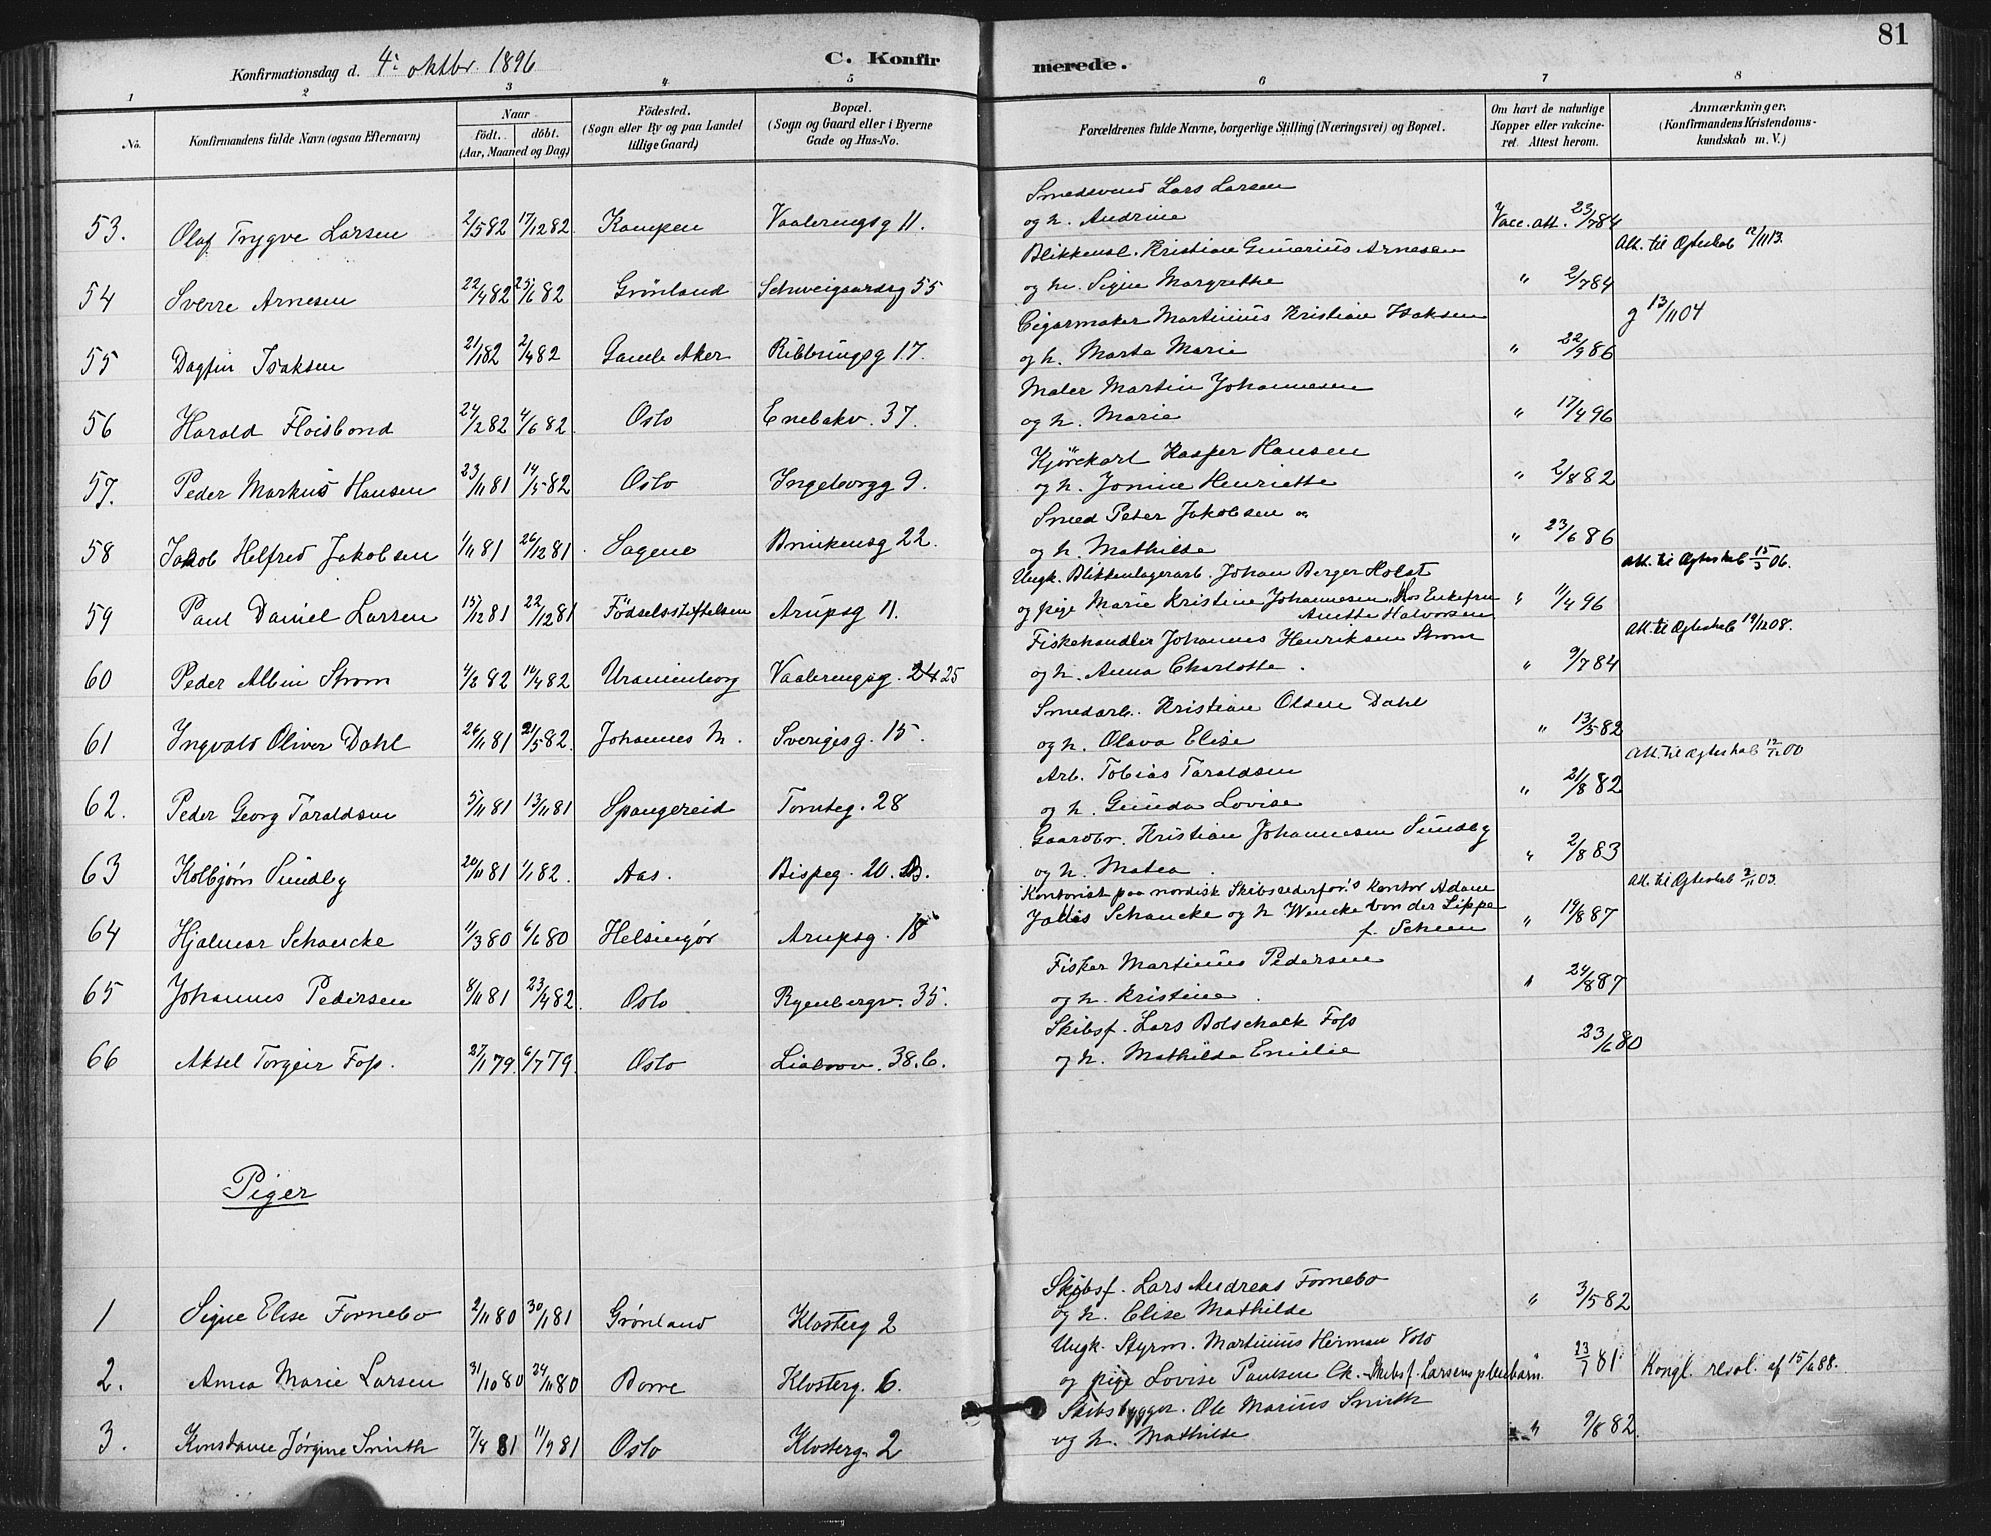 81
Konfirmationsdag d. 4: oktbr 1896 C. Konfirmerede.
1 2 3 4 5 6 7 8
No. Konfirmandens fulde Navn (ogsaa Efternavn) Naar födt. döbt. (Aar, Maaned og Dag) Födested. (Sogn eller By og paa Landet tillige Gaard) Bopæl. (Sogn og Gaard eller i Byerne Gade og Hus-No. Forældrenes fulde Navne, borgerlige Stilling (Næringsvei) og Bopæl. Om havt de naturlige Kopper eller vakcineret. Attest herom. Anmærkninger. (Konfirmandens Kristendomskundskab m. V.)
Smedsvend Lars Larsen
53. Olaf Trygve Larsen 2/5 82 17/12 82 Kampen Vaaleringsg 11. og h. Andrine Vacc. att. 23/7 84
Att. til Ægteskab 12/11 13.
Blikkensl. Kristian Gunerius Arnesen
54 Sverre Arnesen 22/4 82 25/6 82 Grönland Schweigaardsg 55 og h. Signe Margrethe " 2/7 84
g 13/11 04
Cigarmaker Martinius Kristian Isaksen
55 Dagfin Isaksen 21/1 82 2/4 82 Gamle Aker Ribbringsg 17. og h. Marte Marie " 22/9 86
Maler Martin Johannesen
56 Harald Floisbond 24/2 82 4/6 82. Oslo Enebakv. 37. og h. Marie " 17/4 96
Kjörekarl Kasper Hansen
57. Peder Markus Hansen 23/11 81 14/5 82 Oslo Ingeborgg 9. og h. Jonine Henriette " 2/8 82
Smed Peter Jakobsen
58 Jakob Helfred Jakobsen 1/11 81 26/12 81 Sagene Brinkensg 22. og h. Mathilde " 23/6 86
Att. til Ægteskab 15/5 06.
Ungk. Blikkenlagerarb. Johan Berger Holst
59 Paul Daniel Larsen 15/12 81 22/12 81 Födselsstiftelsen Arupsg 11. og pige Marie Kristine Johannesen, hos Enkefru Anette Halvorsen " 11/4 96
Att. til Ægteskab 19/12 08.
Fiskehandler Johannes Henriksen Strom
60 Peder Albin Strom 4/2 82 14/4 82 Uranienborg Vaaleringsg. 24 25 og h. Anna Charlotte. " 9/7 84
Smedarb. Kristian Olsen Dahl
61 Ingvald Oliver Dahl 26/11 81 21/5 82. Johannes M. Sverigesg. 15. og h. Olava Elise " 13/5 82
Att. til Ægteskab 12/12 00
Arb. Tobias Taraldsen
62. Peder Georg Taraldsen 5/11 81 13/11 81 Spangereid Tomteg. 28 og h. Gunda Lovise " 21/8 82
Gaardbr. Kristian Johannesen Sundby
63 Kolbjørn Sundby 20/11 81 1/1 82. Aas. Bispeg. 20. B. og h. Matea. " 2/8 83
Att. til Ægteskab 3/11 03.
Kontorist paa nordisk Skibsrederfor.s kontor Adam
64 Hjalmar Schancke 11/3 80 6/6 80 Helsingør Arupsg. 18 Schancke og h Wencke von der Lippe f. Scheen " 19/8 87
Fisker Martinus Pedersen
65 Johannes Pedersen 8/11 81 23/4 82. Oslo Ryenbergv. 35. og h. Kristine. " 24/8 87
Skibsf. Lars Bolschack Foss
66 Aksel Torgeir Foss. 27/1 79. 6/7 79. Oslo Liabrov. 38.6. og h. Mathilde Emilie 23/6 80
Piger
Skibsf. Lars Andreas Fornebo
1 Signe Elise Fornebo 2/11 80 30/1 81 Grønland Klosterg 2 og h. Elise Mathilde " 3/5 82
Ungk. Styrm. Martinius Herman
2. Anna Marie Larsen 31/10 80 24/11 80 Borre Klosterg. 6. og pige Lovise Paulsen Ck. Skibsf. Larsens pleiebarn " 23/7 81 Kongl. resol. af 15/6 88.
Skibsbygger. Ole Marius Smith
3. Konstance Jørgine Smith 7/4 81 11/9 81 Oslo Klosterg. 2 og h. Mathilde " 9/8 82.